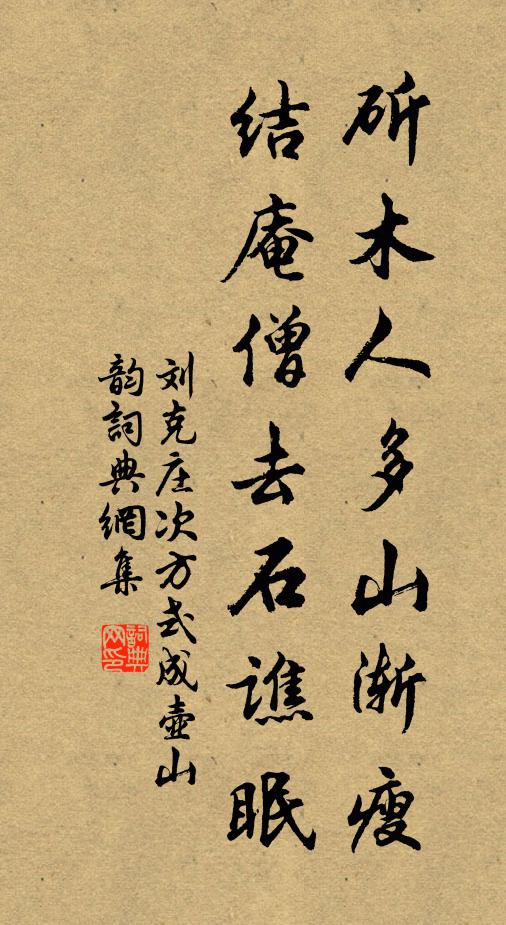 斫木人多山渐瘦
结庵僧去石谯眠
刘克庄次方武成壶山
韵词典網集
詞典
网印